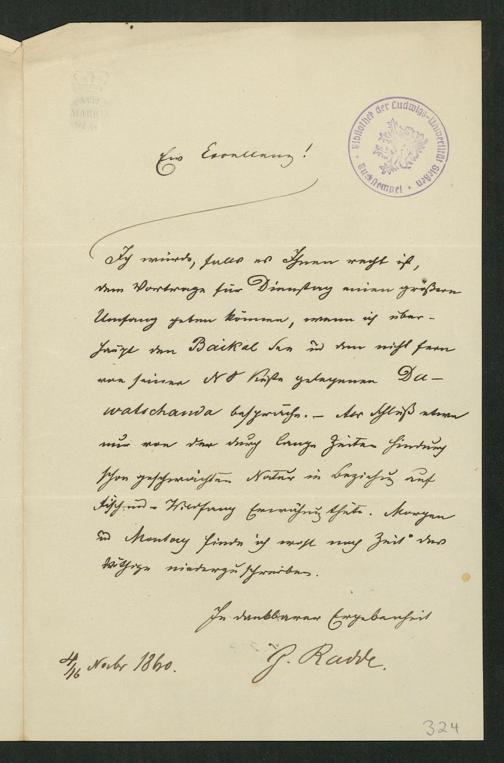 Bibliothek der Ludwigs-Universität Gießen
Buchstempel
Ew Excellenz!
Ich würde, falls es Ihnen recht ist,
dem Vortrage für Dienstag einen größeren
Umfang geben können, wenn ich über-
haupt den Baikal See u dem nicht fern
von seiner NO Küste gelegenen Da-
watschanda bespräche. – Am Schluß etwa
nur von der durch lange Zeiten hindurch
schon geschwächten Natur in Beziehung auf
Fisch und Wildfang Erwähnung thäte. Morgen
u Montag finde ich wohl noch Zeit das
Nöthige niederzuschreiben.
In dankbarer Ergebenheit
G. Radde.
4/16 Novbr 1860.
324